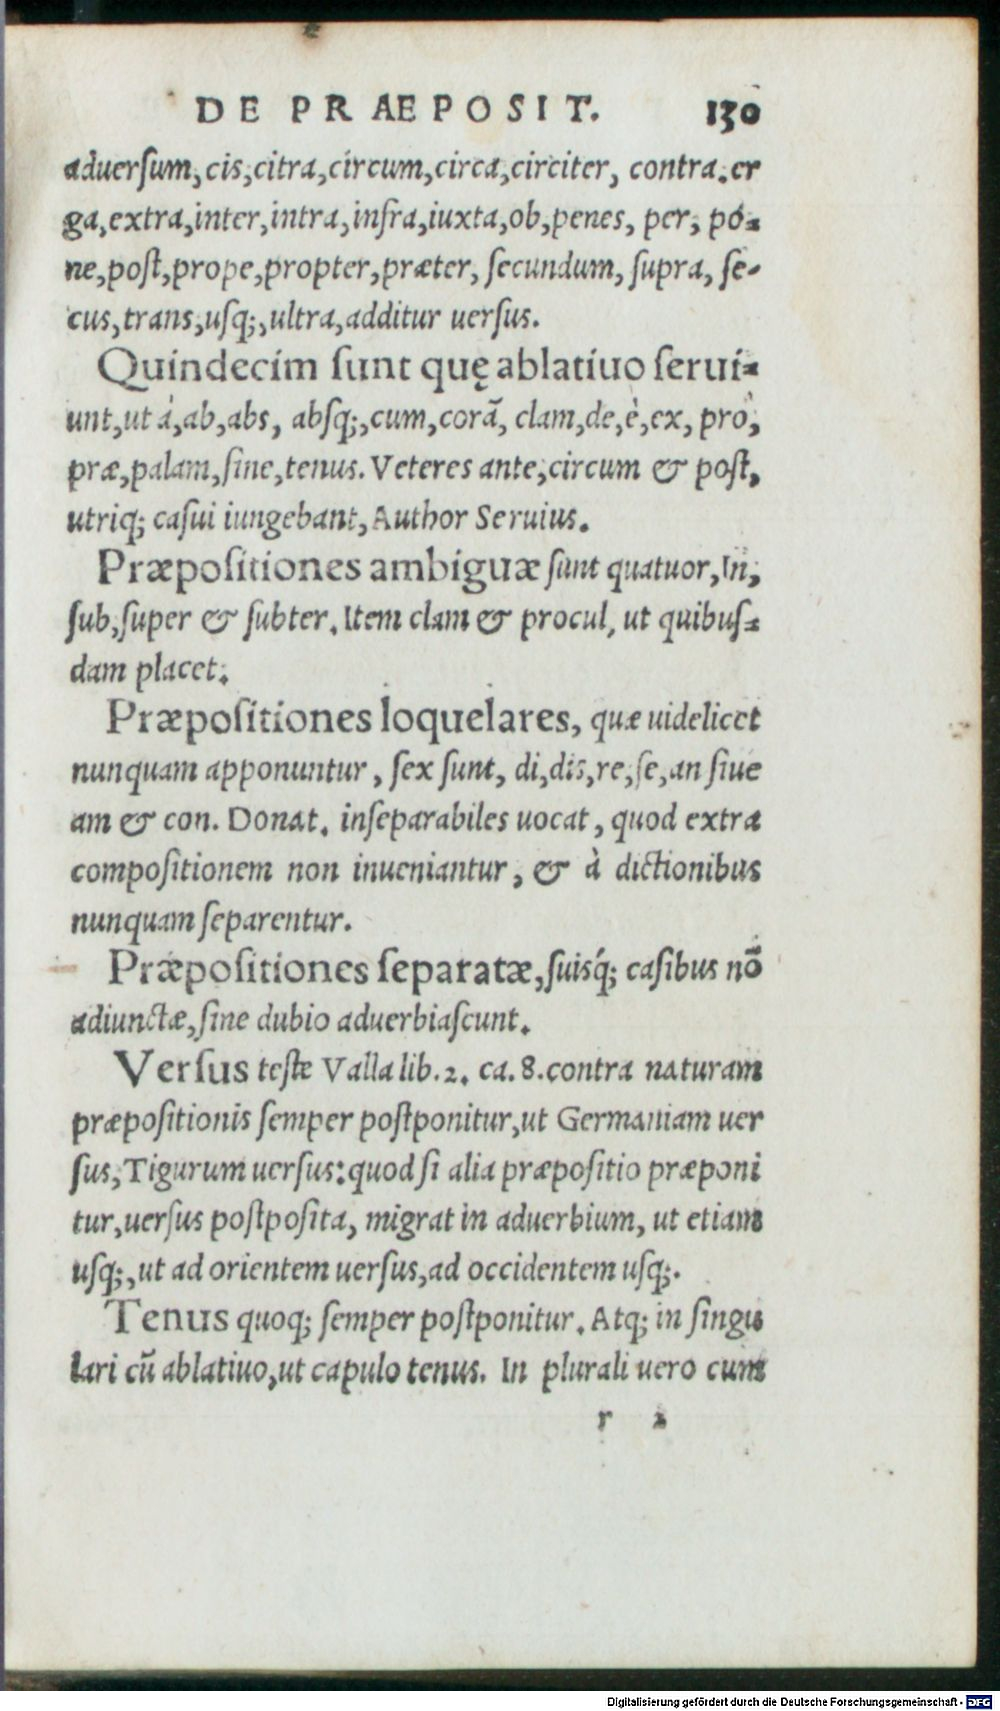 DE PRAEPOSIT. 130
aduerſum, cis, citra, circum, circa, circiter, contra. er
ga, extra, inter, intra, infra, iuxta, ob, penes, per, po-
ne, poſt, prope, propter, præter, ſecundum, ſupra, ſe-
cus, trans, uſq;, ultra, additur uerſus.
Quindecim ſunt quę ablatiuo ſerui-
unt, ut à, ab, abs, abſq;, cum, corã, clam, de, è, ex, pro,
præ, palam, ſine, tenus. Veteres ante, circum & poſt,
utriq; caſui iungebant, Author Seruius.
Præpoſitiones ambiguæ ſunt quatuor, In,
ſub, ſuper & ſubter. Item clam & procul, ut quibuſ-
dam placet.
Præpoſitiones loquelares, quæ uidelicet
nunquam apponuntur, ſex ſunt, di, dis, re, ſe, an ſiue
am & con. Donat. inſeparabiles uocat, quod extra
compoſitionem non inueniantur, & à dictionibus
nunquam ſeparentur.
Præpoſitiones ſeparatæ, ſuisq́; caſibus nõ
adiunctæ, ſine dubio aduerbiaſcunt.
Verſus teſte Valla lib. 2. ca. 8. contra naturam
præpoſitionis ſemper poſtponitur, ut Germaniam uer
ſus, Tigurum uerſus: quod ſi alia præpoſitio præponi
tur, uerſus poſtpoſita, migrat in aduerbium, ut etiam
uſq;, ut ad orientem uerſus, ad occidentem uſq;.
Tenus quoq; ſemper poſtponitur. Atq; in ſingu
lari cũ ablatiuo, ut capulo tenus. In plurali uero cum
r 2
Digitalisierung gefördert durch die Deutsche Forschungsgemeinschaft - DFG